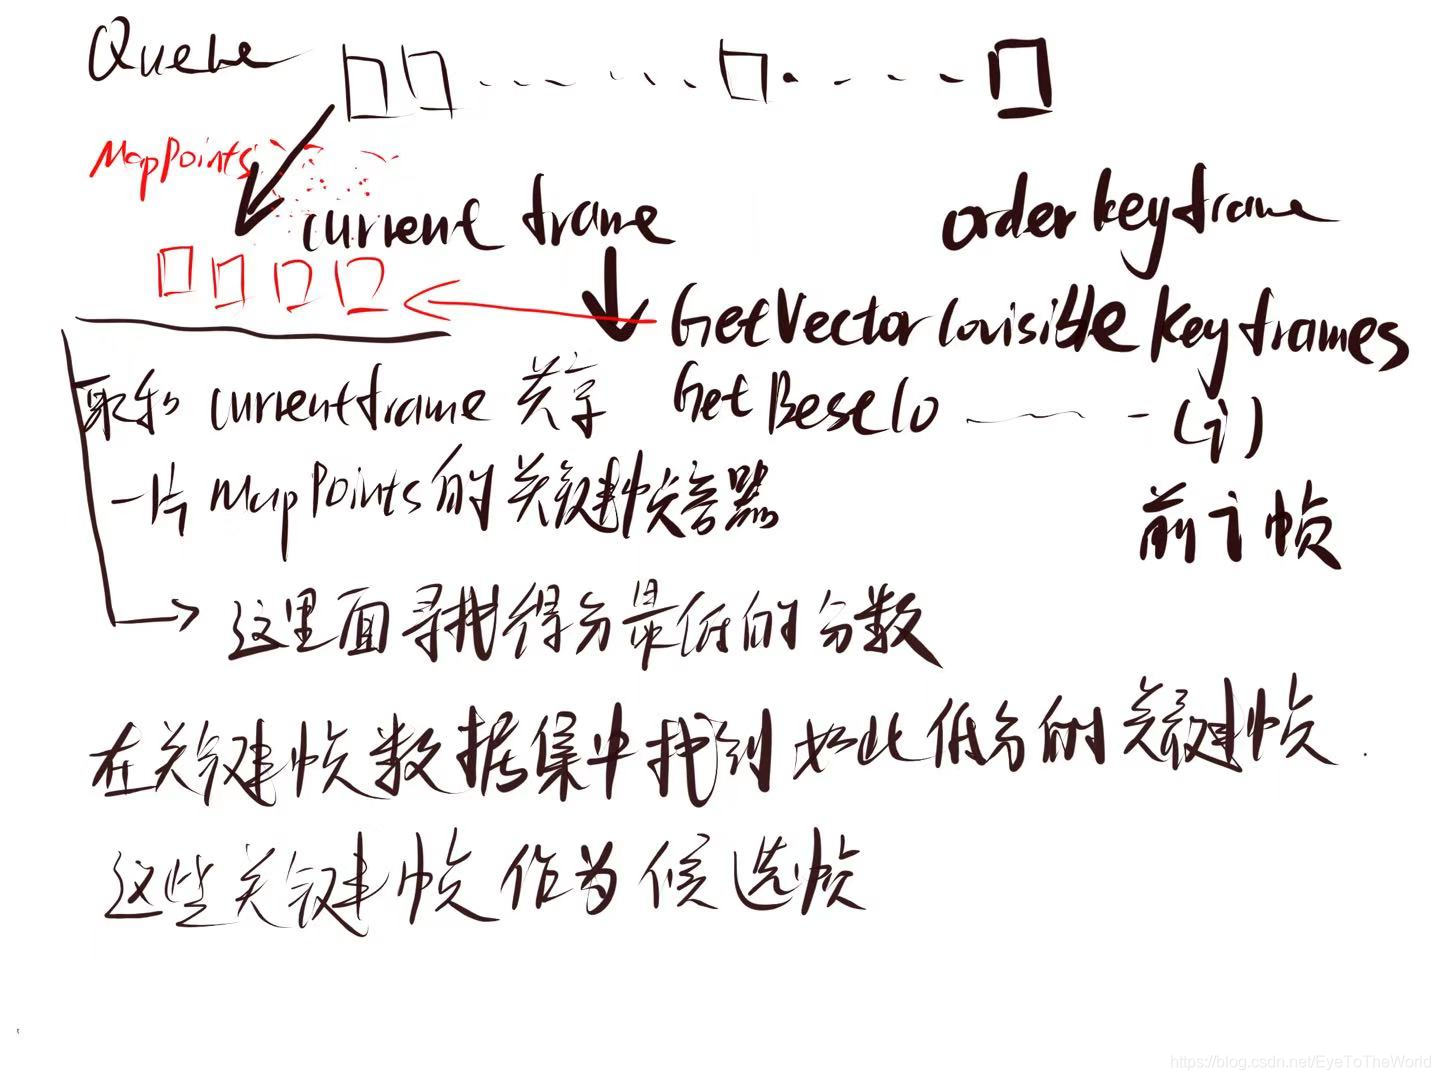 Queue
MapPoints
current frame
order keyframe
GetVectorCovisible Keyframes
取和 currentframe 共享
GetBestCo — - (i)
一片 MapPoints的关键帧容器
前i帧
这里面寻找得分最低的分数
在关键帧数据集中找到 如此低分的关键帧.
这些关键帧作为候选帧
https://blog.csdn.net/EyeToTheWorld